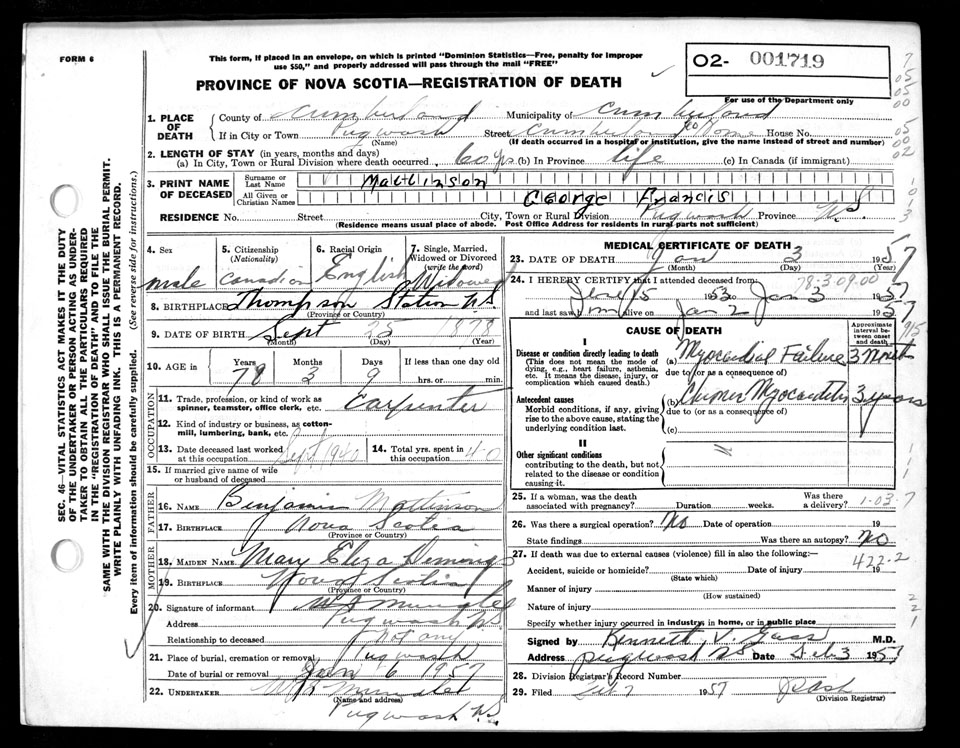 FORM 6
This form, if placed in an envelope, on which is printed "Dominion Statistics—Free, penalty for improper
use $50," and properly addressed will pass through the mail "FREE"
02- 001719
PROVINCE OF NOVA SCOTIA—REGISTRATION OF DEATH
For use of the Department only
1. PLACE OF DEATH
County of Cumberland Municipality of Cumberland
If in City or Town Pugwash Street Cumberland Co Home House No.
(Name) (If death occurred in a hospital or institution, give the name instead of street and number)
2. LENGTH OF STAY (in years, months and days)
(a) In City, Town or Rural Division where death occurred 60 yrs (b) In Province life (c) In Canada (if immigrant)
3. PRINT NAME OF DECEASED
Surname or Last Name Mattinson
All Given or Christian Names George Francis
RESIDENCE No. Street City, Town or Rural Division Pugwash Province N.S.
(Residence means usual place of abode. Post Office Address for residents in rural parts not sufficient)
4. Sex male
5. Citizenship (Nationality) Canadian
6. Racial Origin English
7. Single, Married, Widowed or Divorced (write the word) Widowed
8. BIRTHPLACE Thompson Station N.S.
(Province or Country)
9. DATE OF BIRTH Sept 25 1878
(Month) (Day) (Year)
10. AGE in Years Months Days If less than one day old
78 3 9 hrs. or min.
OCCUPATION
11. Trade, profession, or kind of work as spinner, teamster, office clerk, etc. Carpenter
12. Kind of industry or business, as cotton-mill, lumbering, bank, etc.
13. Date deceased last worked at this occupation Sept 1940
14. Total yrs. spent in this occupation 40
15. If married give name of wife or husband of deceased
FATHER
16. NAME Benjamin Mattinson
17. BIRTHPLACE Nova Scotia
(Province or Country)
MOTHER
18. MAIDEN NAME Mary Eliza Demings
19. BIRTHPLACE Nova Scotia
(Province or Country)
20. Signature of informant
Address Pugwash N.S.
Relationship to deceased Not any
21. Place of burial, cremation or removal Pugwash
Date of burial or removal Jan 6 1957
22. UNDERTAKER
(Name and address)
Pugwash N.S.
MEDICAL CERTIFICATE OF DEATH
23. DATE OF DEATH Jan 3 1957
(Month) (Day) (Year)
78-3-09.00
24. I HEREBY CERTIFY that I attended deceased from:
15 1953 to Jan 3 1957
and last saw him alive on Jan 2 1957
CAUSE OF DEATH
Approximate interval between onset and death
I
Disease or condition directly leading to death
(This does not mean the mode of dying, e.g., heart failure, asthenia, etc. It means the disease, injury, or complication which caused death.)
(a) Myocardial Failure 3 Month
due to (or as a consequence of)
Antecedent causes
Morbid conditions, if any, giving rise to the above cause, stating the underlying condition last.
(b) Chronic Myocarditis 3 years
due to (or as a consequence of)
(c)
II
Other significant conditions
contributing to the death, but not related to the disease or condition causing it.
25. If a woman, was the death associated with pregnancy? Duration weeks. Was there a delivery?
1-03-7
26. Was there a surgical operation? No Date of operation 19
State findings Was there an autopsy? NO
27. If death was due to external causes (violence) fill in also the following:—
422-2
Accident, suicide or homicide? Date of injury 19
(State which)
Manner of injury
(How sustained)
Nature of injury
Specify whether injury occurred in industry, in home, or in public place
Signed by Kenneth V. Gass M.D.
Address Pugwash NS Date Feb 3 1957
28. Division Registrar's Record Number
29. Filed Feb 7 1957
(Division Registrar)
SEC. 46—VITAL STATISTICS ACT MAKES IT THE DUTY
OF THE UNDERTAKER OR PERSON ACTING AS UNDERTAKER TO OBTAIN ALL THE PARTICULARS REQUIRED
IN THE "REGISTRATION OF DEATH" AND TO FILE THE
SAME WITH THE DIVISION REGISTRAR WHO SHALL ISSUE THE BURIAL PERMIT.
WRITE PLAINLY WITH UNFADING INK. THIS IS A PERMANENT RECORD.
Every item of information should be carefully supplied. (See reverse side for instructions.)